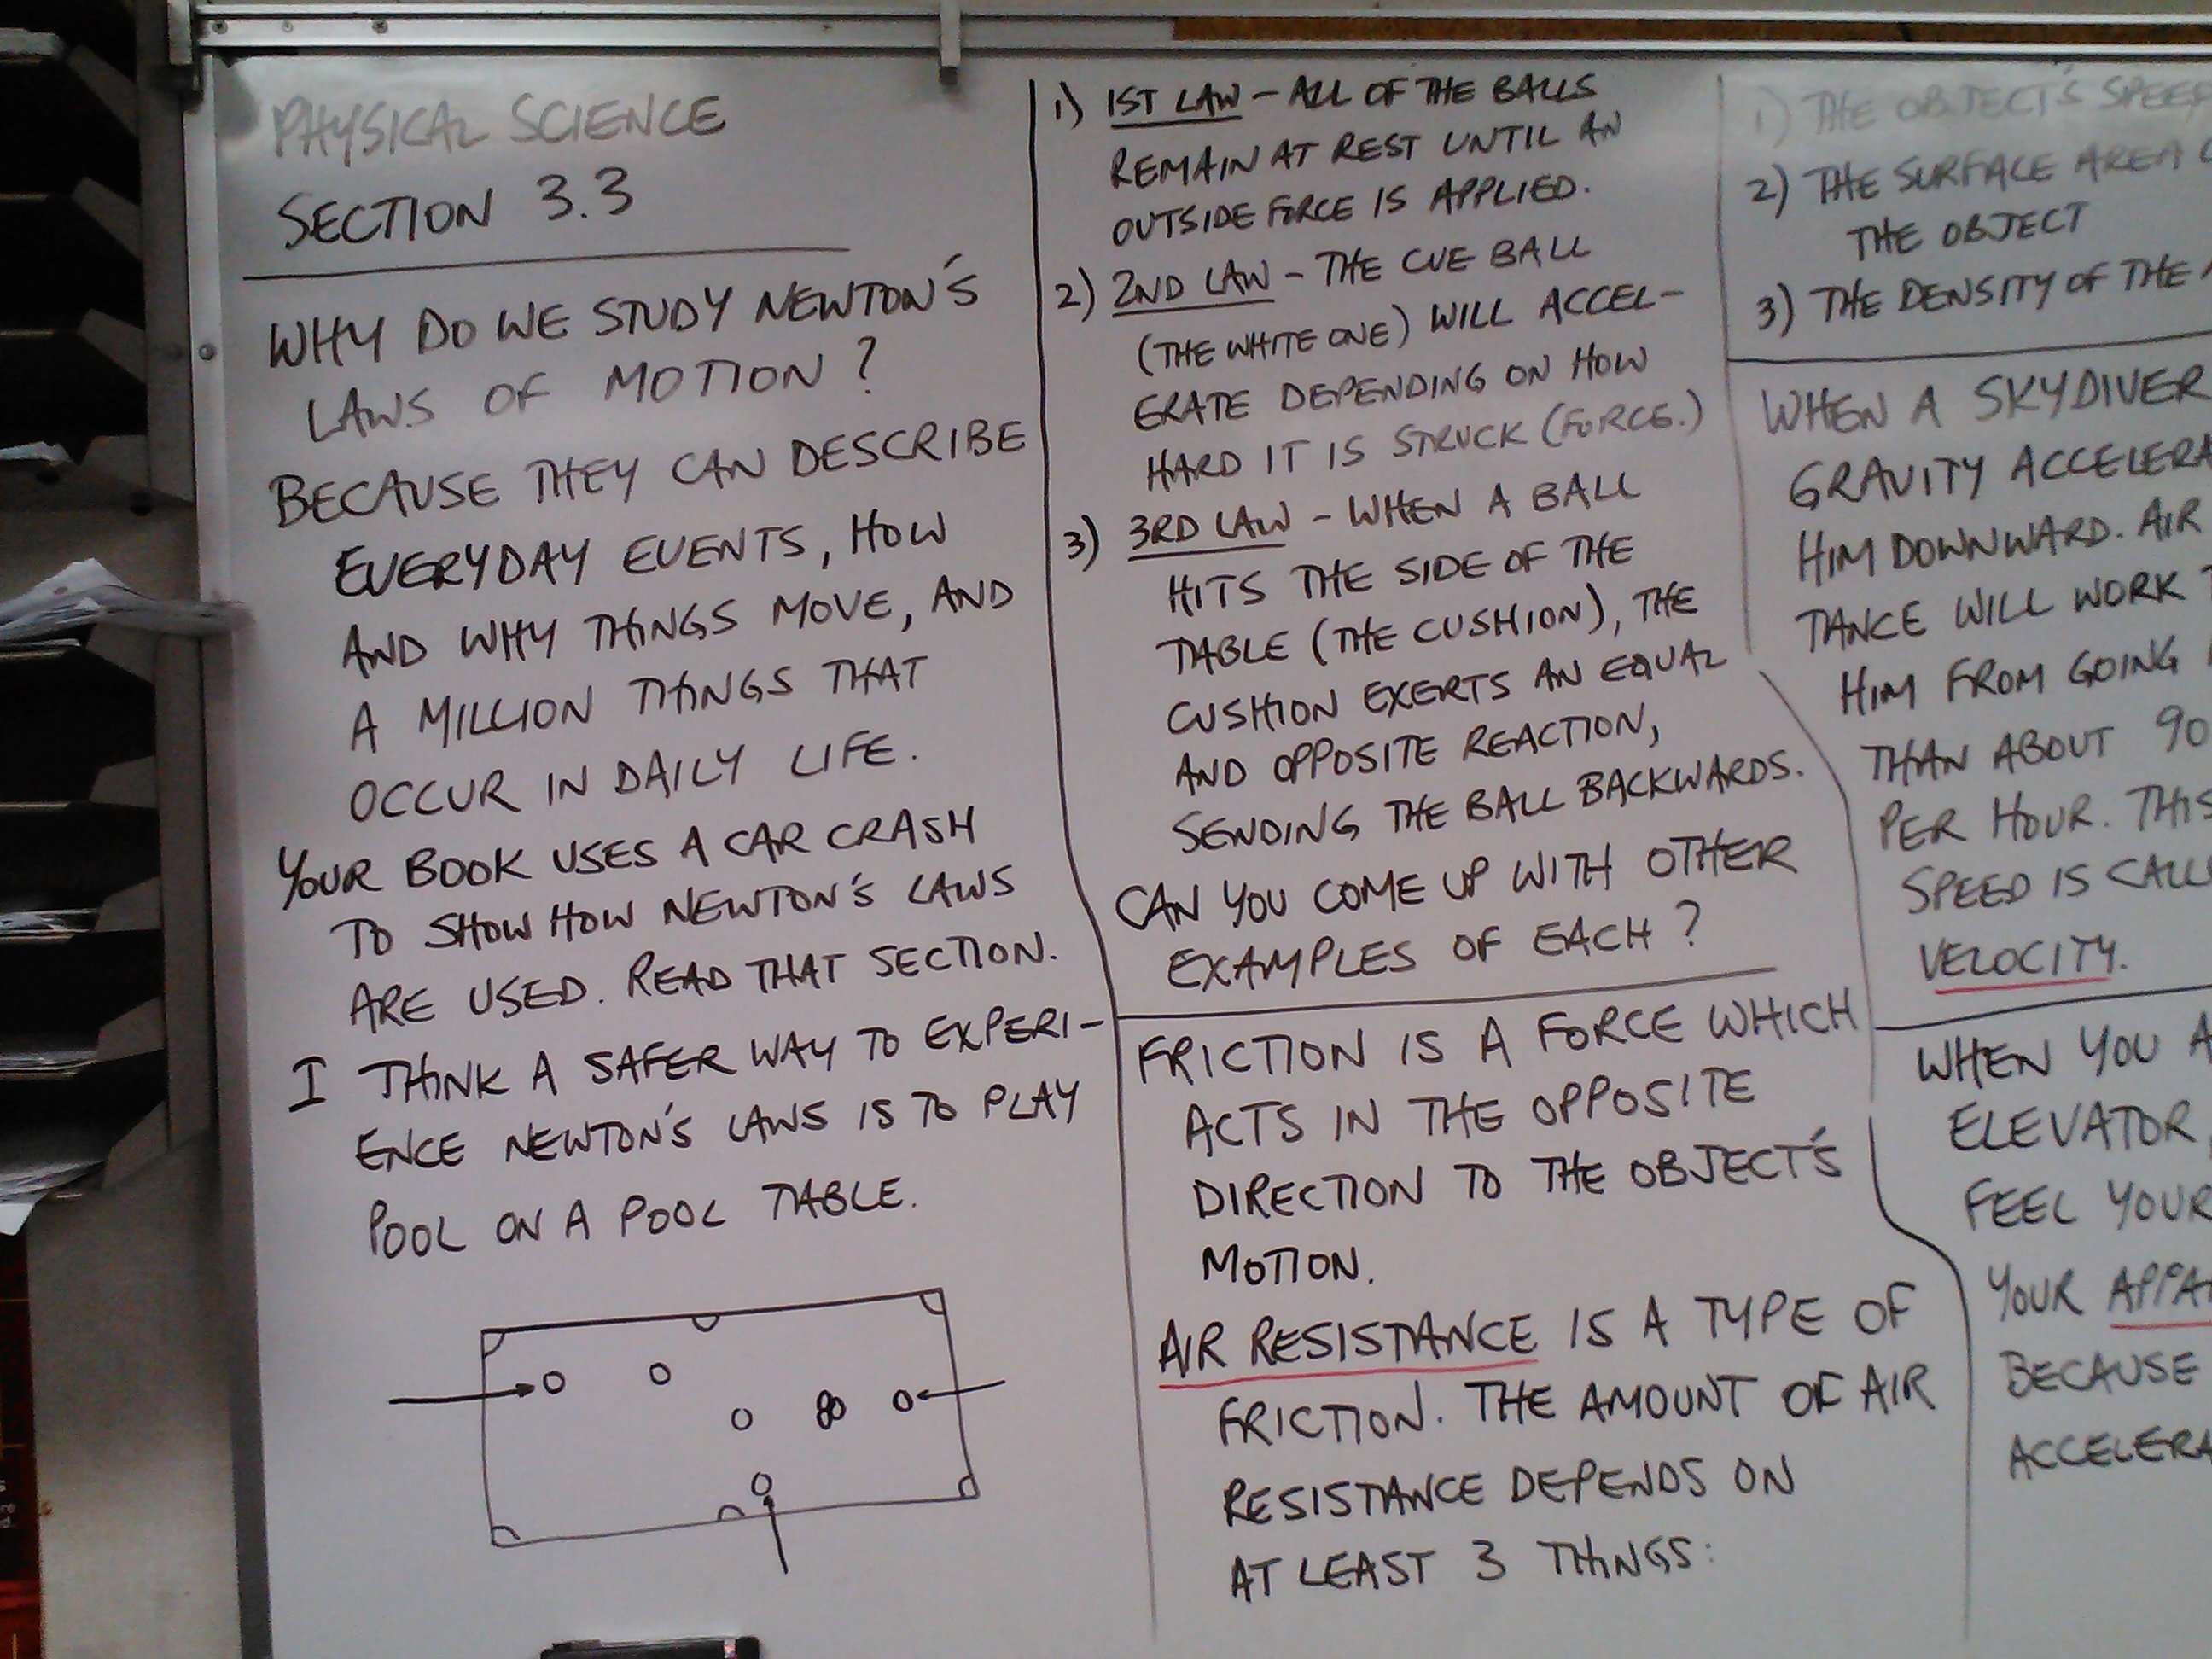 PHYSICAL SCIENCE
SECTION 3.3
WHY DO WE STUDY NEWTON'S
LAWS OF MOTION?
BECAUSE THEY CAN DESCRIBE
EVERYDAY EVENTS, HOW
AND WHY THINGS MOVE, AND
A MILLION THINGS THAT
OCCUR IN DAILY LIFE.
YOUR BOOK USES A CAR CRASH
TO SHOW HOW NEWTON'S LAWS
ARE USED. READ THAT SECTION.
I THINK A SAFER WAY TO EXPERI-
ENCE NEWTON'S LAWS IS TO PLAY
POOL ON A POOL TABLE.
1) 1ST LAW - ALL OF THE BALLS
REMAIN AT REST UNTIL AN
OUTSIDE FORCE IS APPLIED.
2) 2ND LAW - THE CUE BALL
(THE WHITE ONE) WILL ACCEL-
ERATE DEPENDING ON HOW
HARD IT IS STRUCK (FORCE.)
3) 3RD LAW - WHEN A BALL
HITS THE SIDE OF THE
TABLE (THE CUSHION), THE
CUSHION EXERTS AN EQUAL
AND OPPOSITE REACTION,
SENDING THE BALL BACKWARDS.
CAN YOU COME UP WITH OTHER
EXAMPLES OF EACH?
FRICTION IS A FORCE WHICH
ACTS IN THE OPPOSITE
DIRECTION TO THE OBJECT'S
MOTION.
AIR RESISTANCE IS A TYPE OF
FRICTION. THE AMOUNT OF AIR
RESISTANCE DEPENDS ON
AT LEAST 3 THINGS:
1) THE OBJECT'S SPEED
2) THE SURFACE AREA
THE OBJECT
3) THE DENSITY OF THE
WHEN A SKYDIVER
GRAVITY ACCELERA
HIM DOWNWARD. AIR
TANCE WILL WORK
HIM FROM GOING
THAN ABOUT 90
PER HOUR. THIS
SPEED IS CALL
VELOCITY.
WHEN YOU
ELEVATOR,
FEEL YOUR
YOUR APPA
BECAUSE
ACCELERA